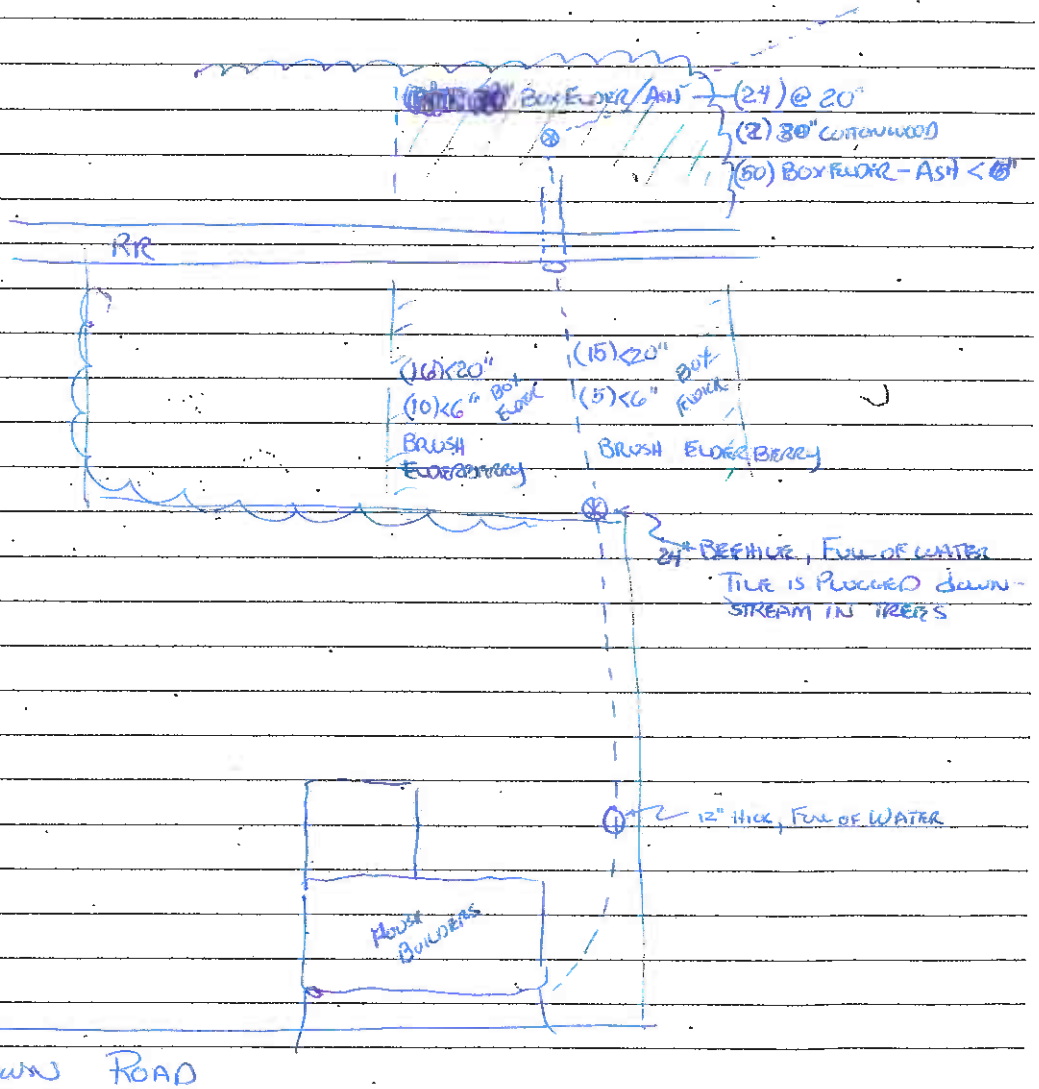 BOXELDER/ASH (24) @ 20"
(2) 30" COTTONWOOD
(50) BOXELDER - ASH <6"
RR
(16)<20"
(10)<6" BOX ELDER
BRUSH
ELDERBERRY
(15)<20"
(5)<6" BOX ELDER
BRUSH ELDERBERRY
24" BEEHIVE, FULL OF WATER
TILE IS PLUGGED DOWN-
STREAM IN TREES
12" HICK, FULL OF WATER
HOUSE
BUILDERS
ROAD